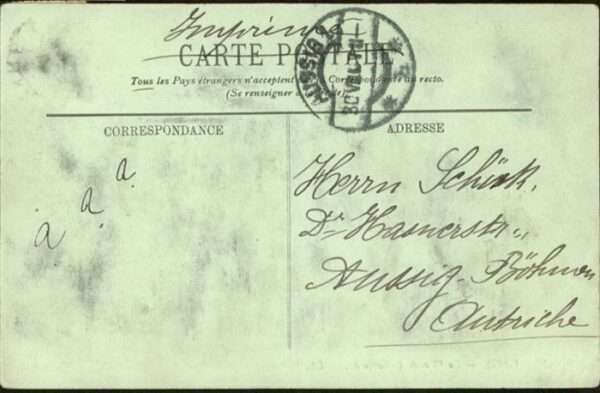 Imprimé
CARTE POSTALE
Tous les Pays étrangers n'acceptent la Correspondance au recto.
(Se renseigner à la
CORRESPONDANCE
ADRESSE
a
a
a
Herrn Schück,
Dr Hasnerstr.,
Aussig-Böhmen
Autriche
AUSSIG